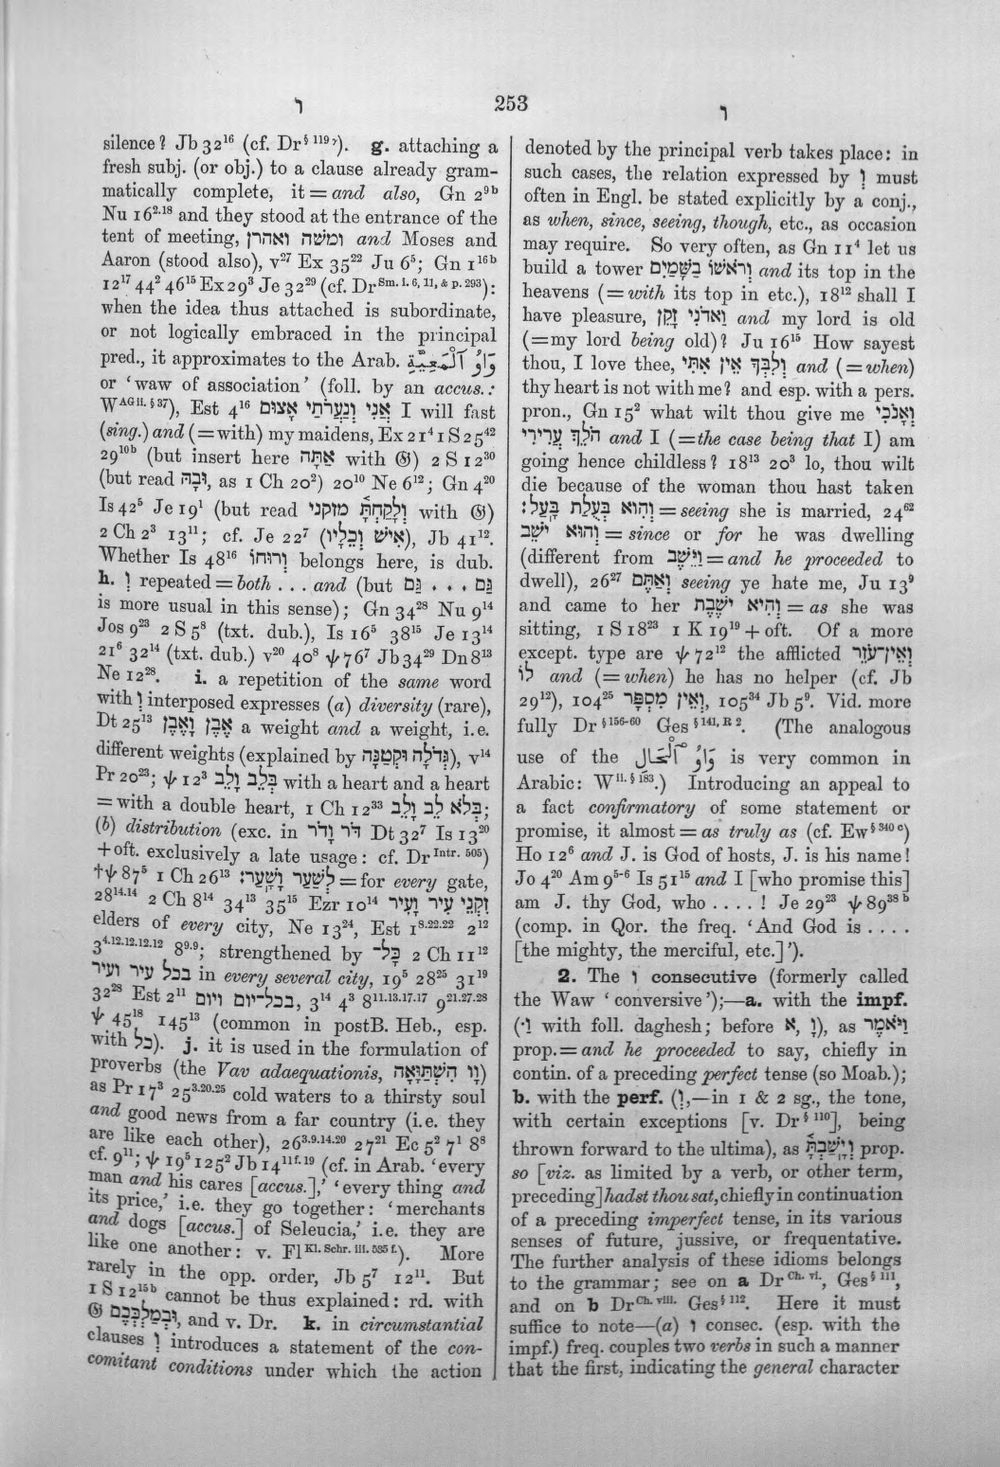 ו
253
ו
silence? Jb 32¹⁶ (cf. Dr§ 119γ). g. attaching a
fresh subj. (or obj.) to a clause already gram-
matically complete, it = and also, Gn 2⁹ᵇ
Nu 16²·¹⁸ and they stood at the entrance of the
tent of meeting, ומשה ואהרן and Moses and
Aaron (stood also), v²⁷ Ex 35²² Ju 6⁵; Gn 1¹⁶ᵇ
12¹⁷ 44² 46¹⁵ Ex 29³ Je 32²⁹ (cf. Dr Sm. I. 6, 11, & p. 293):
when the idea thus attached is subordinate,
or not logically embraced in the principal
pred., it approximates to the Arab. وَاوُ ٱلْمَعِيَّة
or ‘waw of association’ (foll. by an accus.:
W AG ii. § 37), Est 4¹⁶ אֲנִי וְנַעֲרֹתַי אָצוּם I will fast
(sing.) and (= with) my maidens, Ex 21⁴ 1 S 25⁴²
29¹⁰ᵇ (but insert here אַתָּה with 𝔊) 2 S 12³⁰
(but read וּבָהּ, as 1 Ch 20²) 20¹⁰ Ne 6¹²; Gn 4²⁰
Is 42⁵ Je 19¹ (but read וְלָקַחְתָּ מזקני with 𝔊)
2 Ch 2³ 13¹¹; cf. Je 22⁷ (אִישׁ וְכֵלָיו), Jb 41¹².
Whether Is 48¹⁶ ורוחו belongs here, is dub.
h. וְ repeated = both . . . and (but גַּם . . . גַּם
is more usual in this sense); Gn 34²⁸ Nu 9¹⁴
Jos 9²³ 2 S 5⁸ (txt. dub.), Is 16⁵ 38¹⁵ Je 13¹⁴
21⁶ 32¹⁴ (txt. dub.) v²⁰ 40⁸ ψ 76⁷ Jb 34²⁹ Dn 8¹³
Ne 12²⁸. i. a repetition of the same word
with וְ interposed expresses (a) diversity (rare),
Dt 25¹³ אֶבֶן וָאֶבֶן a weight and a weight, i.e.
different weights (explained by גְּדֹלָה וּקְטַנָּה), v¹⁴
Pr 20²³; ψ 12³ בְּלֵב וָלֵב with a heart and a heart
= with a double heart, 1 Ch 12³³ בְּלֹא לֵב וָלֵב;
(b) distribution (exc. in דֹּר וָדֹר Dt 32⁷ Is 13²⁰
+ oft. exclusively a late usage: cf. Dr Intr. 505)
†ψ 87⁵ 1 Ch 26¹³ לְשַׁעַר וָשָׁעַר׃ = for every gate,
28¹⁴·¹⁴ 2 Ch 8¹⁴ 34¹³ 35¹⁵ Ezr 10¹⁴ זִקְנֵי עִיר וָעִיר
elders of every city, Ne 13²⁴, Est 1⁸·²²·²² 2¹²
3⁴·¹²·¹²·¹²·¹² 8⁹·⁹; strengthened by כָּל־ 2 Ch 11¹²
בכל עיר ועיר in every several city, 19⁵ 28²⁵ 31¹⁹
32²⁸ Est 2¹¹ בכל־יום ויום, 3¹⁴ 4³ 8¹¹·¹³·¹⁷·¹⁷ 9²¹·²⁷·²⁸
ψ 45¹⁸ 145¹³ (common in postB. Heb., esp.
with כל). j. it is used in the formulation of
proverbs (the Vav adaequationis, וָו הִשְׁתַּוָּאָה)
as Pr 17³ 25³·²⁰·²⁵ cold waters to a thirsty soul
and good news from a far country (i.e. they
are like each other), 26³·⁹·¹⁴·²⁰ 27²¹ Ec 5² 7¹ 8⁸
cf. 9¹¹; ψ 19⁵ 125² Jb 14¹¹ᶠ·¹⁹ (cf. in Arab. ‘every
man and his cares [accus.],’ ‘every thing and
its price,’ i.e. they go together: ‘merchants
and dogs [accus.] of Seleucia,’ i.e. they are
like one another: v. Fl Kl. Schr. iii. 535 f.). More
rarely in the opp. order, Jb 5⁷ 12¹¹. But
1 S 12¹⁵ᵇ cannot be thus explained: rd. with
𝔊 וּבְמַלְכְּכֶם, and v. Dr. k. in circumstantial
clauses וְ introduces a statement of the con-
comitant conditions under which the action
denoted by the principal verb takes place: in
such cases, the relation expressed by וְ must
often in Engl. be stated explicitly by a conj.,
as when, since, seeing, though, etc., as occasion
may require. So very often, as Gn 11⁴ let us
build a tower וְרֹאשׁוֹ בַשָּׁמַיִם and its top in the
heavens (= with its top in etc.), 18¹² shall I
have pleasure, וַאדֹנִי זָקֵן and my lord is old
(= my lord being old)? Ju 16¹⁵ How sayest
thou, I love thee, וְלִבְּךָ אֵין אִתִּי and (= when)
thy heart is not with me? and esp. with a pers.
pron., Gn 15² what wilt thou give me וְאָנֹכִי
הֹלֵךְ עֲרִירִי and I (= the case being that I) am
going hence childless? 18¹³ 20³ lo, thou wilt
die because of the woman thou hast taken
וְהִוא בְּעֻלַת בָּעַל׃ = seeing she is married, 24⁶²
וְהוּא יֹשֵׁב = since or for he was dwelling
(different from וַיֵּשֶׁב = and he proceeded to
dwell), 26²⁷ וְאַתֶּם seeing ye hate me, Ju 13⁹
and came to her וְהִיא יֹשֶׁבֶת = as she was
sitting, 1 S 18²³ 1 K 19¹⁹ + oft. Of a more
except. type are ψ 72¹² the afflicted וְאֵין־עֹזֵר
לוֹ and (= when) he has no helper (cf. Jb
29¹²), 104²⁵ וְאֵין מִסְפָּר, 105³⁴ Jb 5⁹. Vid. more
fully Dr § 156-60 Ges § 141, R 2. (The analogous
use of the وَاوُ ٱلْحَال is very common in
Arabic: W ii. § 183.) Introducing an appeal to
a fact confirmatory of some statement or
promise, it almost = as truly as (cf. Ew § 340 c)
Ho 12⁶ and J. is God of hosts, J. is his name!
Jo 4²⁰ Am 9⁵⁻⁶ Is 51¹⁵ and I [who promise this]
am J. thy God, who . . . . ! Je 29²³ ψ 89³⁸ ᵇ
(comp. in Qor. the freq. ‘And God is . . . .
[the mighty, the merciful, etc.]’).
2. The וַ consecutive (formerly called
the Waw ‘conversive’);—a. with the impf.
(וַ· with foll. daghesh; before א, וָ), as וַיֹּאמֶר
prop. = and he proceeded to say, chiefly in
contin. of a preceding perfect tense (so Moab.);
b. with the perf. (וְ,—in 1 & 2 sg., the tone,
with certain exceptions [v. Dr § 110], being
thrown forward to the ultima), as וְיָשַׁבְתָּ prop.
so [viz. as limited by a verb, or other term,
preceding] hadst thou sat, chiefly in continuation
of a preceding imperfect tense, in its various
senses of future, jussive, or frequentative.
The further analysis of these idioms belongs
to the grammar; see on a Dr Ch. vi., Ges § 111,
and on b Dr Ch. viii. Ges § 112. Here it must
suffice to note—(a) ו consec. (esp. with the
impf.) freq. couples two verbs in such a manner
that the first, indicating the general character